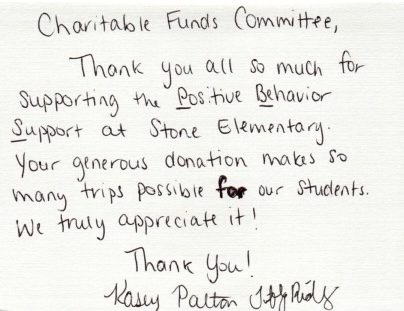 Charitable Funds Committee,
Thank you all so much for
supporting the Positive Behavior
Support at Stone Elementary.
Your generous donation makes so
many trips possible for our students.
We truly appreciate it!
Thank You!
Kasey Palton